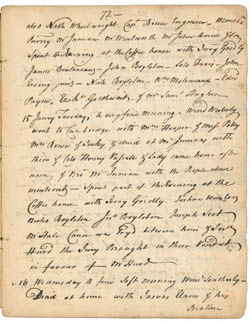 72
also Nath Wheelwright Capt Bruce Engineer
Purvey Mr Jarman Mr Wentworth Mr John Amory &
Spent the Evening at the Coffee house with Jerry Gridley
James Boutineau - John Boylston - Solo Davis - John
Erving junr - Nath Boylston. Wm Molineaux - Edwd
Payne, Ezekl Goldthwait, & Mr Saml Hughes
15 Janry Tuesday, a very fine morning - Wind Westerly
went to Cambridge with Mrs Hooper & Miss Polly
Mrs Bruce & Suckey & dined at Mr Inmans with
them & Colo Henry Vassall & Lady came home after-
noon, & Mr Inman with the People above
mentiond - Spent part of the Evening at the
Coffee house with Jerry Gridly. Joshua Winslow,
Boylston Jno Boylston Joseph Scott
Cause was Tryd between him & Dor
Hurd the Jury Brought in their Verdict
in favour of Mr Hurd
16 Wednsday a fine Soft morning Wind Southerly
Dined at home with Jarvas Elam & his
Brother